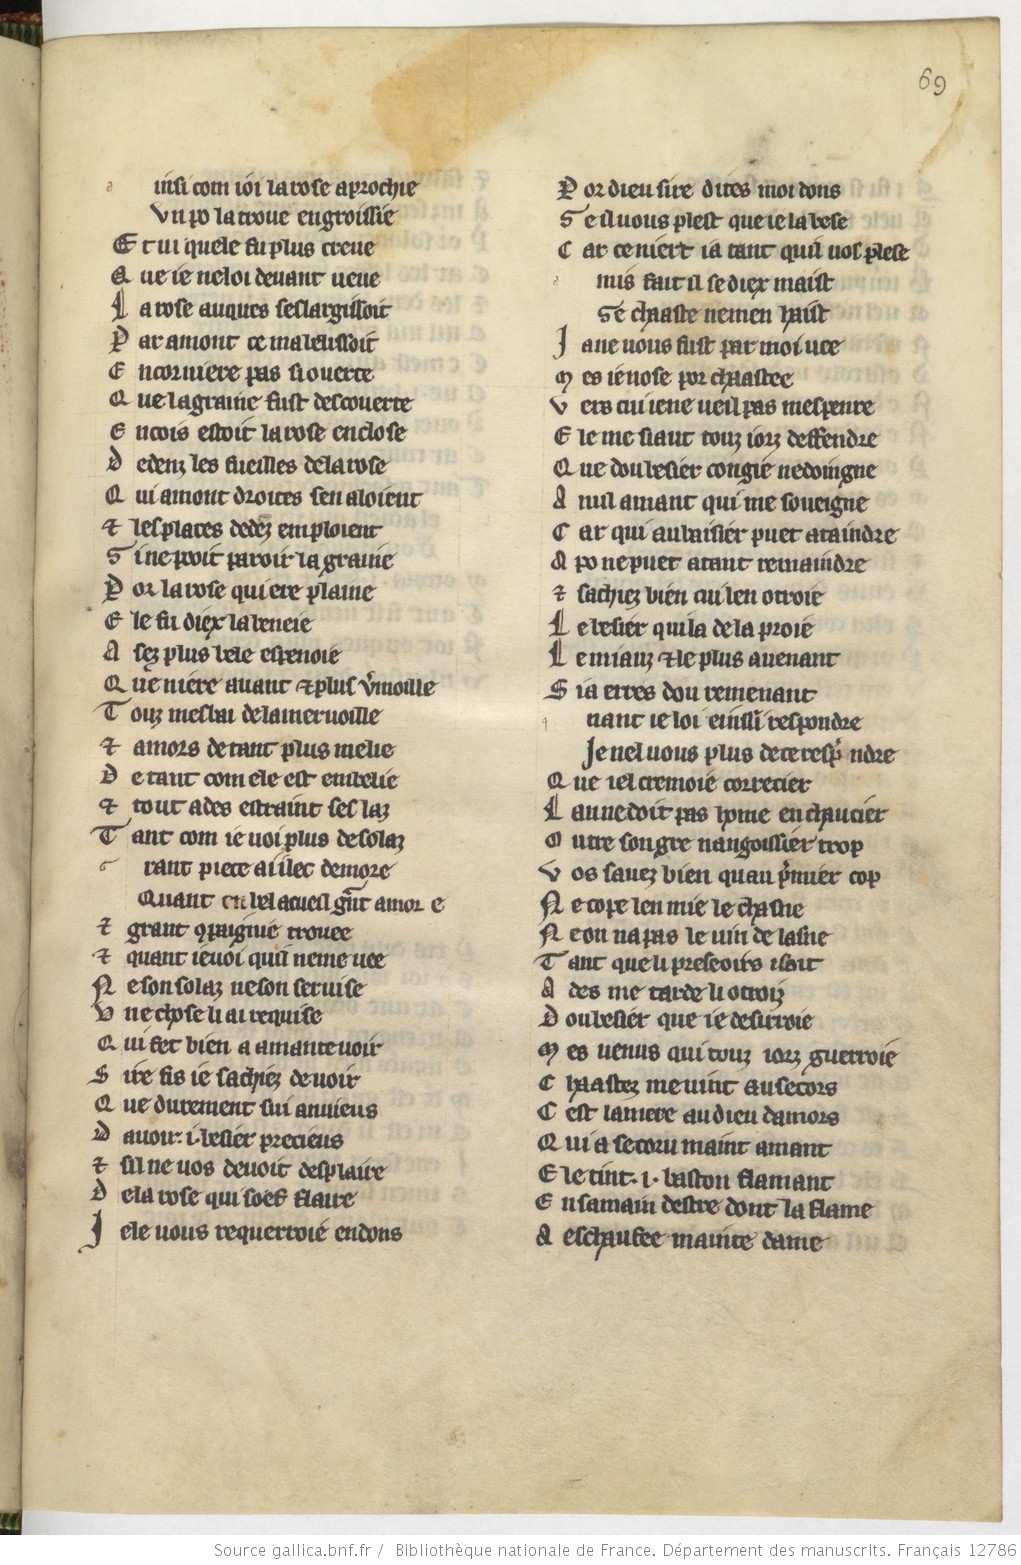 69
a insi com ioi la rose aprochie
Vn po la troue engroissie
Et ui quele fu plus creue
Que ie ne loi deuant ueue
La rose auques seslargissoit
Par amont ce mabelissoit
Encor niere pas si ouerte
Que la graine fust descouerte
Encois estoit la rose enclose
Dedenz les fueilles de la rose
Qui amont droites sen aloient
⁊ les places dedēz emploient
Si ne pooit paroir la graine
Por la rose qui ere plaine
Ele fu diex la beneie
Asez plus bele espenoie
Quene niere auant ⁊ plus v̄moille
Touz mesbai de la meruoille
⁊ amors de tant plus me lie
De tant com ele est embelie
⁊ tout ades estraint ses laz
Tant com ie uoi plus de solaz
G rant piece ai ilec demore
Quant en bel acueil gñt amor e
⁊ grant ꝯpaignie trouee
⁊ quant ie uoi quil ne me uee
Ne son solaz ne son seruise
Vne chose li ai requise
Qui fet bien a amanteuoir
Sire fis ie sachiez de uoir
Que durement sui enuieus
Dauoir .i. besier precieus
⁊ sil ne uos deuoit desplaire
De la rose qui soef flaire
Je le uous requerroie en dons
Por dieu sire dites moi dons
Se il uous plest que ie la bese
Car ce niert ia tant quil uos plese
a mis fait il se diex maist
Se chaaste ne men haist
Ja ne uous fust par moi uee
Mes ie nose por chaastee
Vers cui ie ne ueil pas mesprenre
Ele me siaut touz iorz deffendre
Que dou besier congie ne doingne
A nul amant qui me soueigne
Car qui au baisier puet ataindre
A po ne puet atant remaindre
⁊ sachiez bien cui len otroie
Le besier quil a de la proie
Le miauz ⁊ le plus auenant
Si a erres dou remenant
q uant ie loi einssi respondre
Je nel uous plus de ce resp̄ ndre
Que iel cremoie correcier
Lan ne doit pas home enchaucier
Outre son gre nangoissier trop
Vos sauez bien quau p̄mier cop
Ne cope len mie le chasne
Ne on na pas le uin de lasne
Tant que li presoirs isoit
Ades me tarde li otroiz
Dou besier que ie desirroie
Mes uenus qui touz iorz guerroie
Chaastez me uint au secors
Cest la mere au dieu damors
Qui a secoru maint amant
Ele tint .i. baston flamant
En sa main destre dont la flame
A eschaufee mainte dame
Source gallica.bnf.fr / Bibliothèque nationale de France. Département des manuscrits. Français 12786